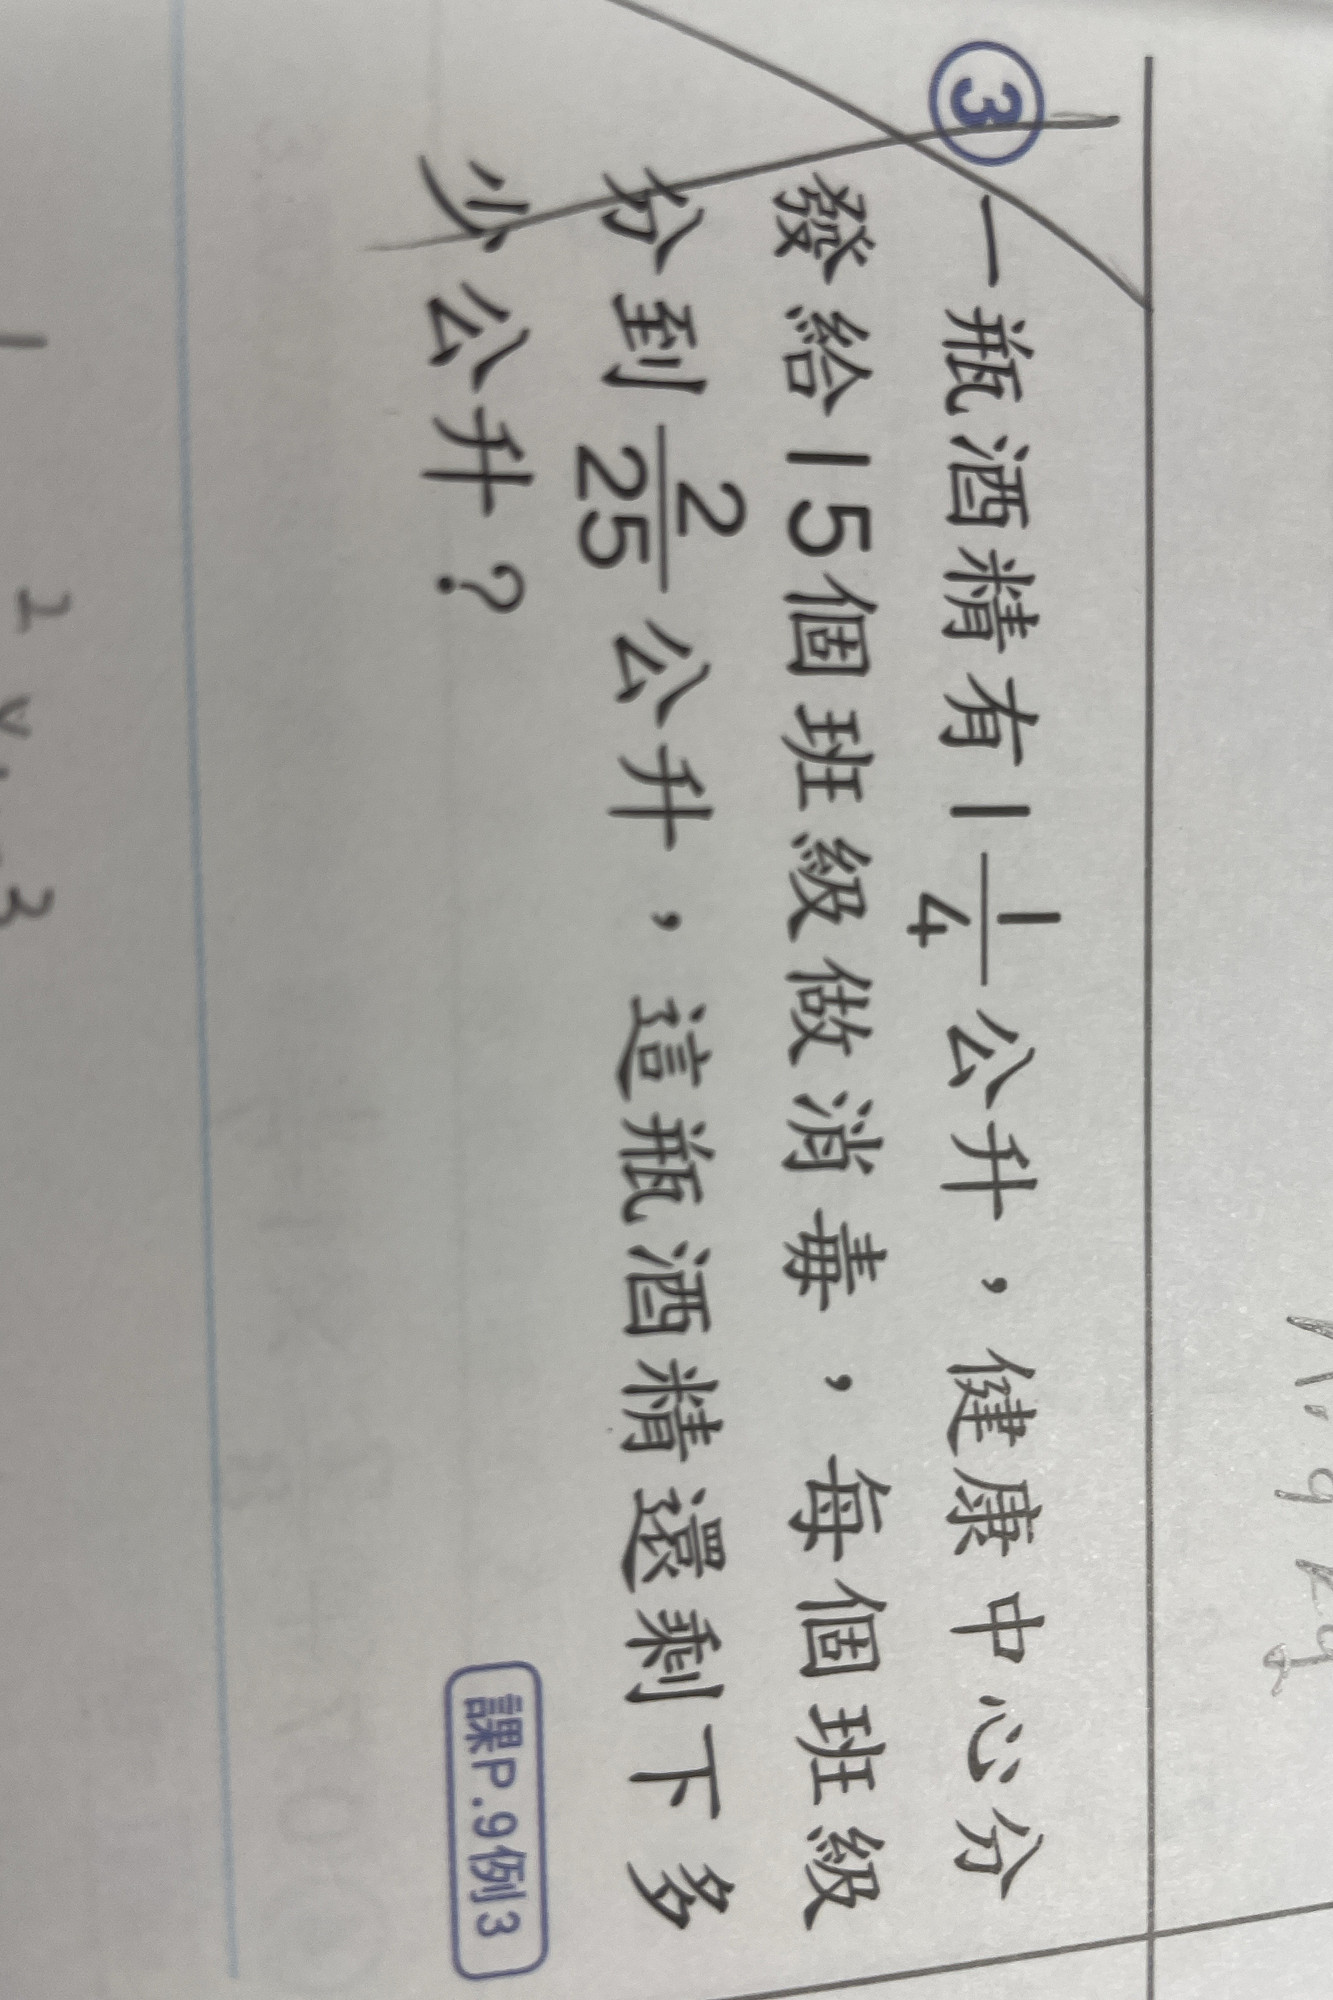 ③ 一瓶酒精有1 1/4 公升，健康中心分
發給15個班級做消毒，每個班級
分到 2/25 公升，這瓶酒精還剩下多
少公升？
課P.9例3